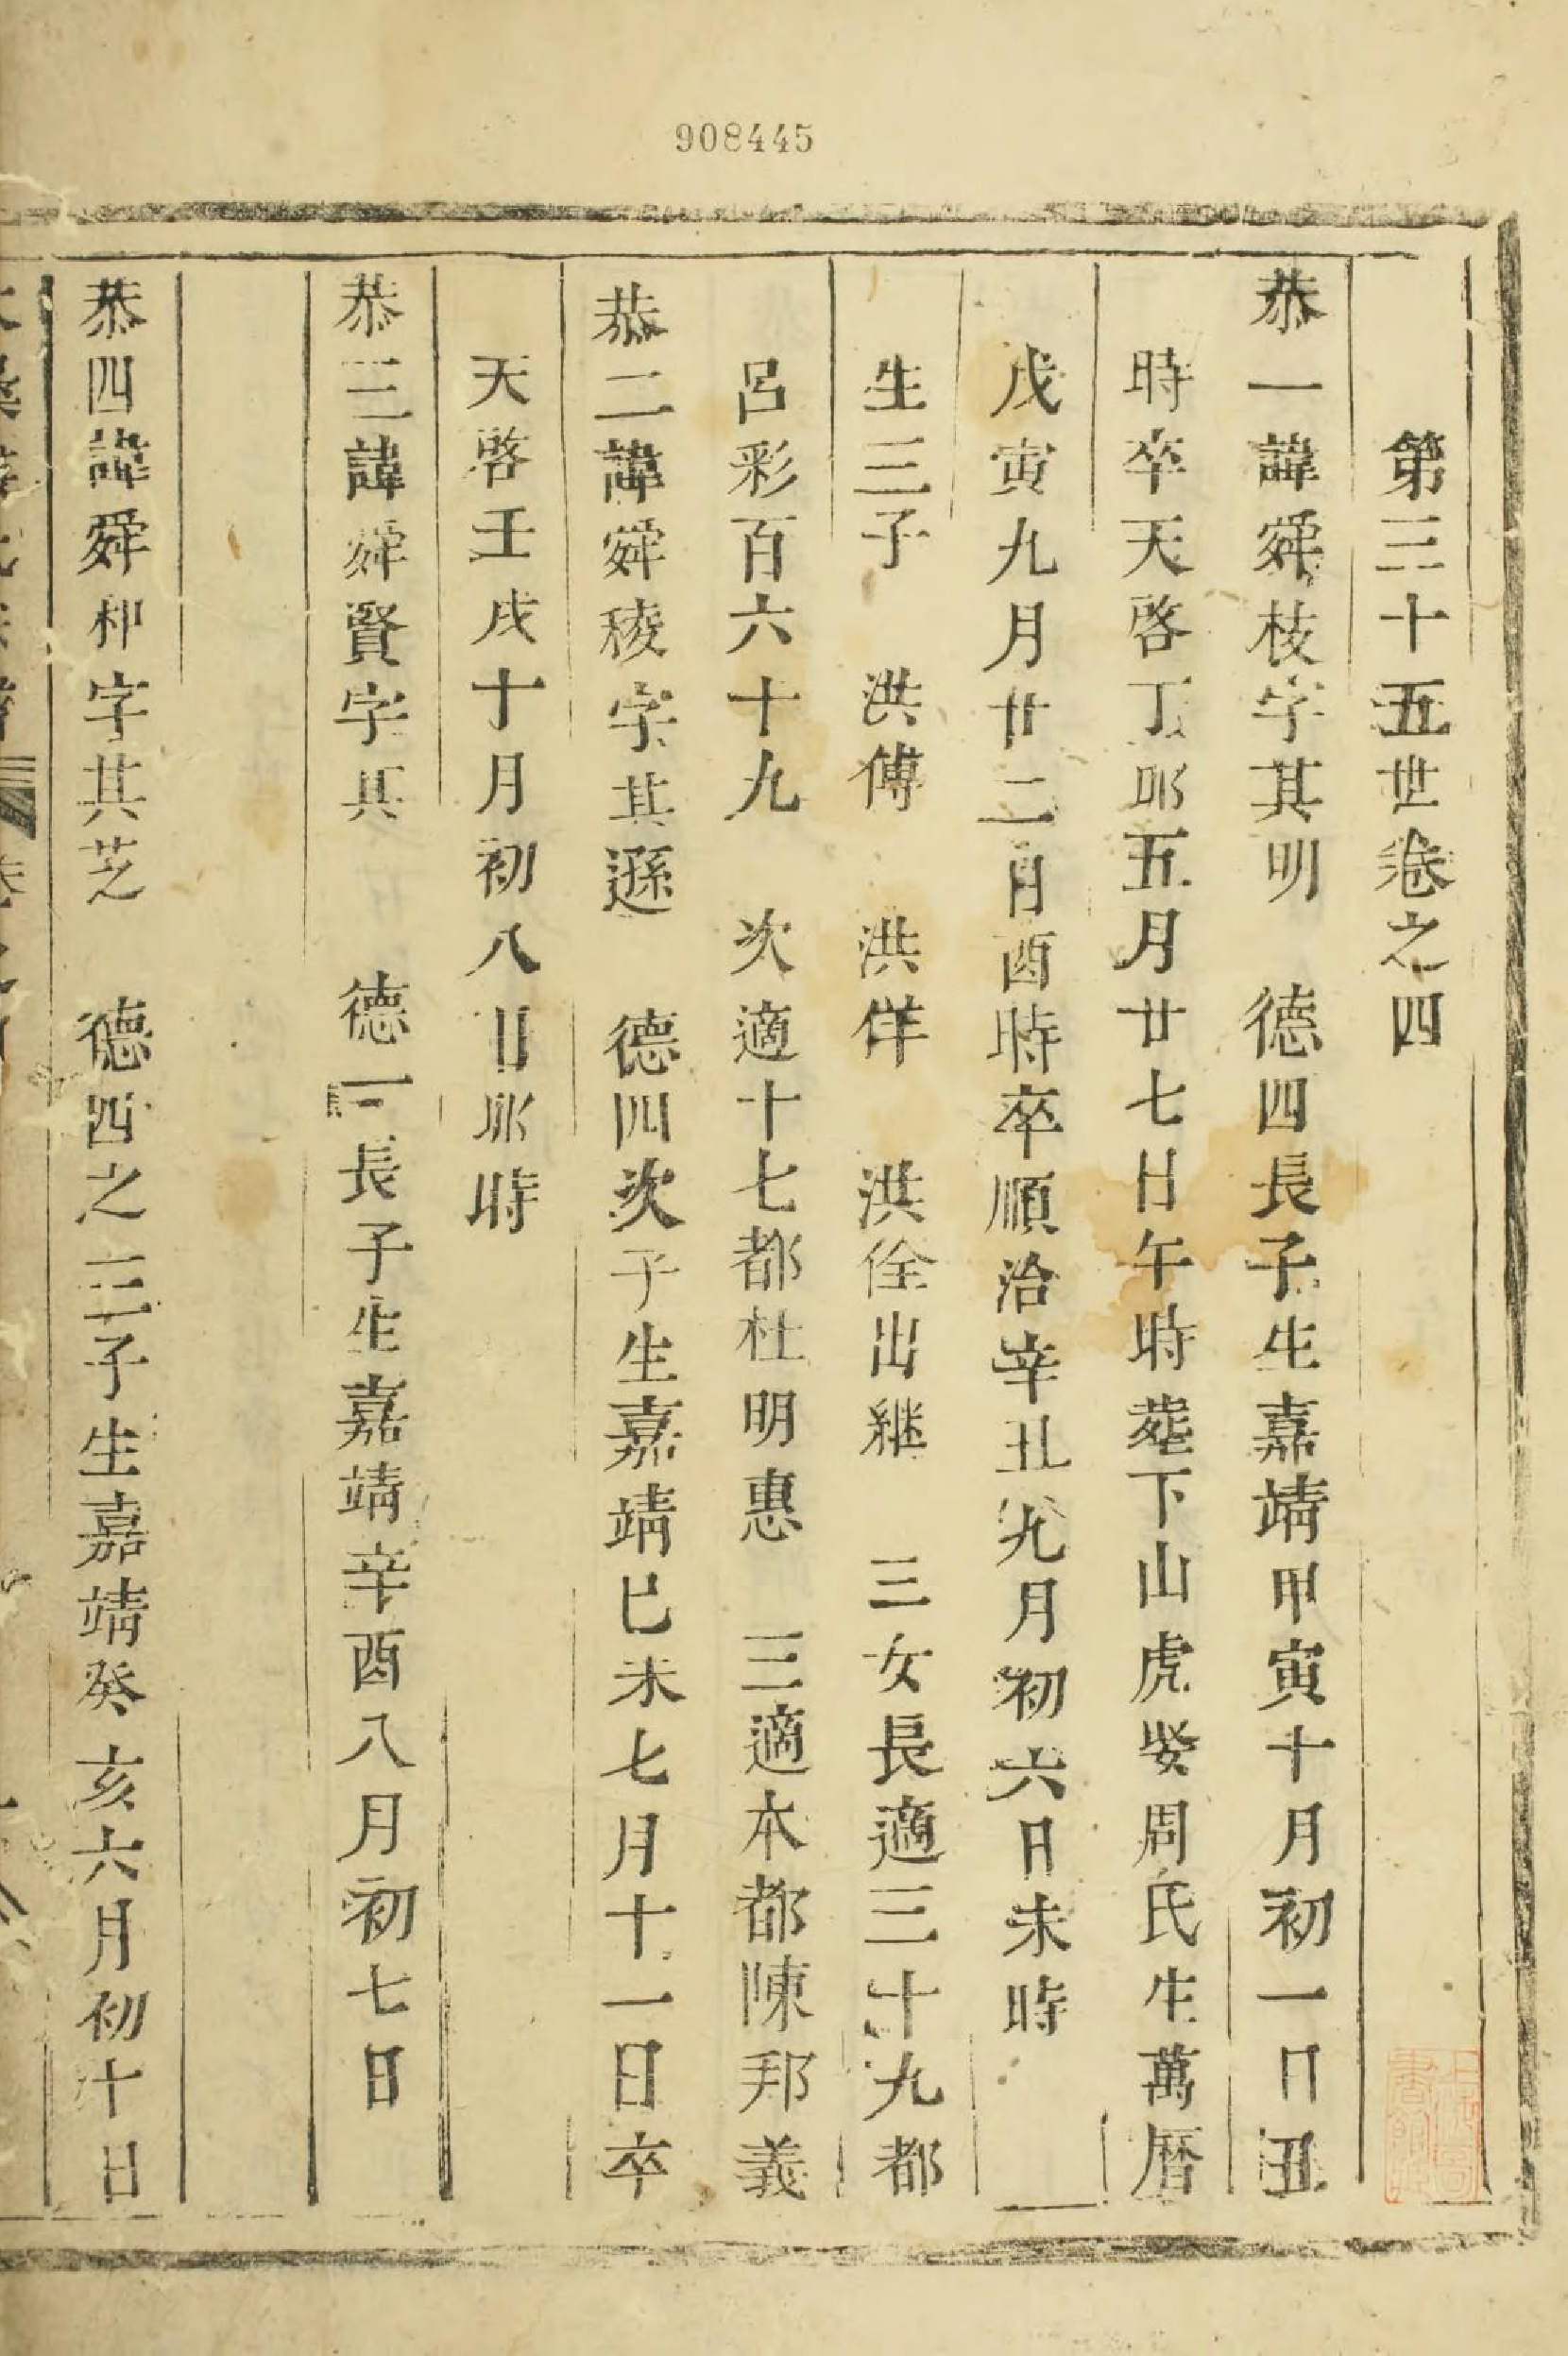 908445
第三十五世卷之四
恭一諱舜枝字其明　德四長子生嘉靖甲寅十月初一日丑
時卒天啓丁卯五月廿七日午時葬下山虎娶周氏生萬曆
戊寅九月廿二日酉時卒順治辛丑九月初六日未時
生三子　洪傅　洪佯　洪佺出繼　三女長適三十九都
呂彩百六十九　次適十七都杜明惠　三適本都陳邦義
恭二諱舜稜字其遜　德四次子生嘉靖巳未七月十一日卒
天啓壬戌十月初八日卯時
恭三諱舜賢字其　德一長子生嘉靖辛酉八月初七日
恭四諱舜和字其芝　德四之三子生嘉靖癸亥六月初十日